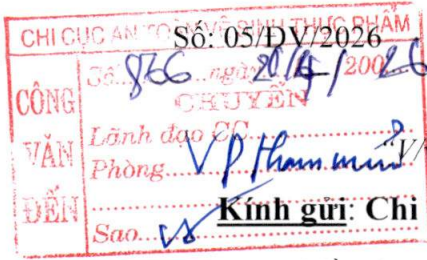 CHI CỤC AN TOÀN VỆ SINH THỰC PHẨM
Số: 05/ĐV/2026
CÔNG VĂN ĐẾN
Số 866 ngày 20/4/2026
CHUYỂN
Lãnh đạo CC
Phòng VP tham mưu
V/
Kính gửi: Chi
Sao